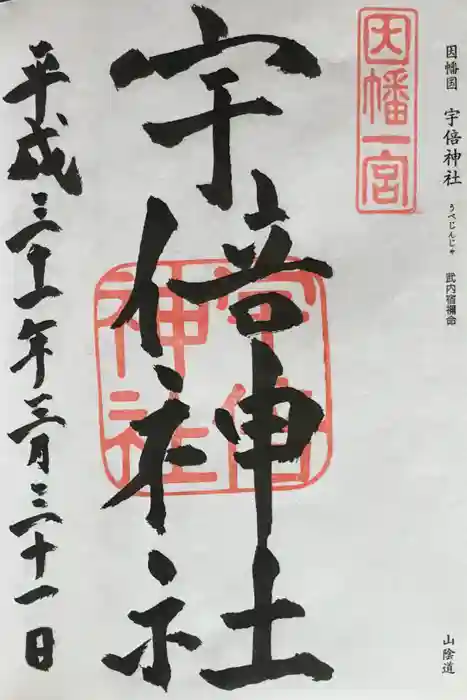 因幡国 宇倍神社 うべじんじゃ 武内宿禰命
山陰道
因幡一宮
宇倍神社
宇倍神社
平成三十一年三月三十一日